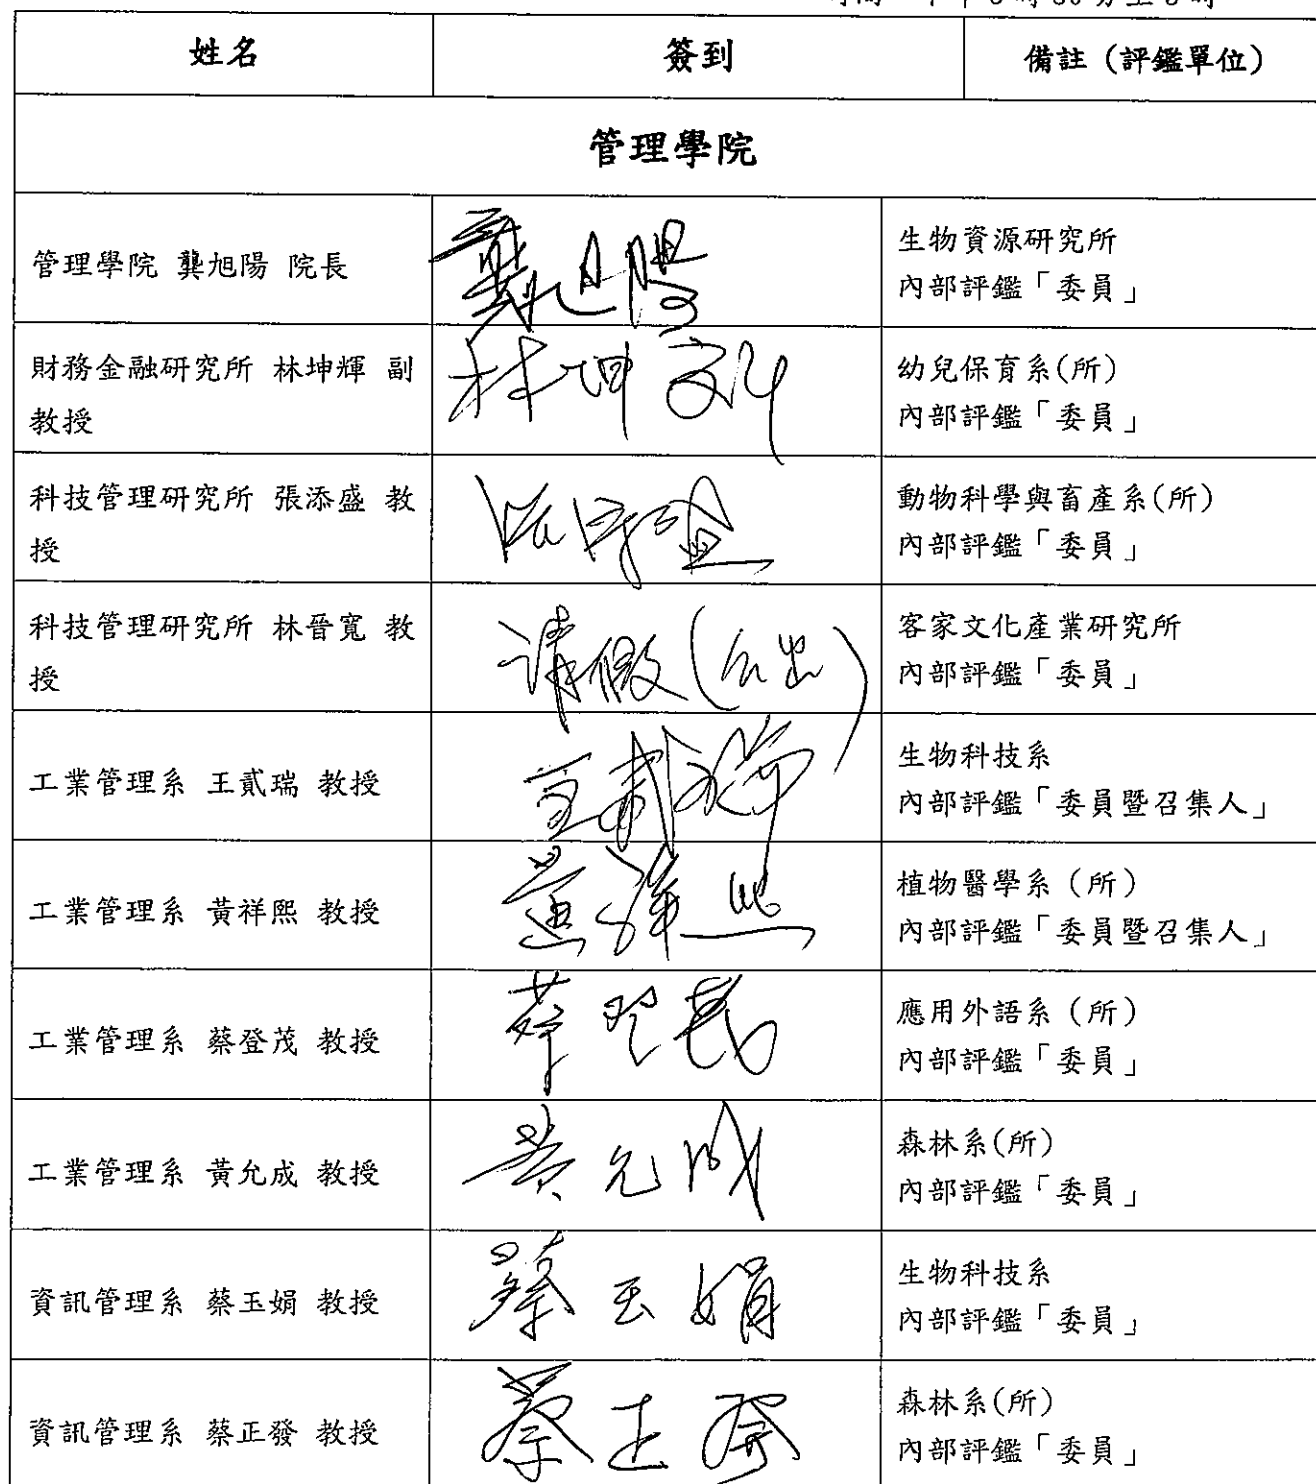 姓名 簽到 備註（評鑑單位）
管理學院
管理學院 龔旭陽 院長 龔旭陽 生物資源研究所
內部評鑑「委員」
財務金融研究所 林坤輝 副 林坤 幼兒保育系(所)
教授 內部評鑑「委員」
科技管理研究所 張添盛 教 動物科學與畜產系(所)
授 內部評鑑「委員」
科技管理研究所 林晉寬 教 请假(公出) 客家文化產業研究所
授 內部評鑑「委員」
工業管理系 王貳瑞 教授 王貳瑞 生物科技系
內部評鑑「委員暨召集人」
工業管理系 黃祥熙 教授 黃祥熙 植物醫學系（所）
內部評鑑「委員暨召集人」
工業管理系 蔡登茂 教授 蔡登茂 應用外語系（所）
內部評鑑「委員」
工業管理系 黃允成 教授 黃允成 森林系(所)
內部評鑑「委員」
資訊管理系 蔡玉娟 教授 蔡玉娟 生物科技系
內部評鑑「委員」
資訊管理系 蔡正發 教授 蔡正發 森林系(所)
內部評鑑「委員」